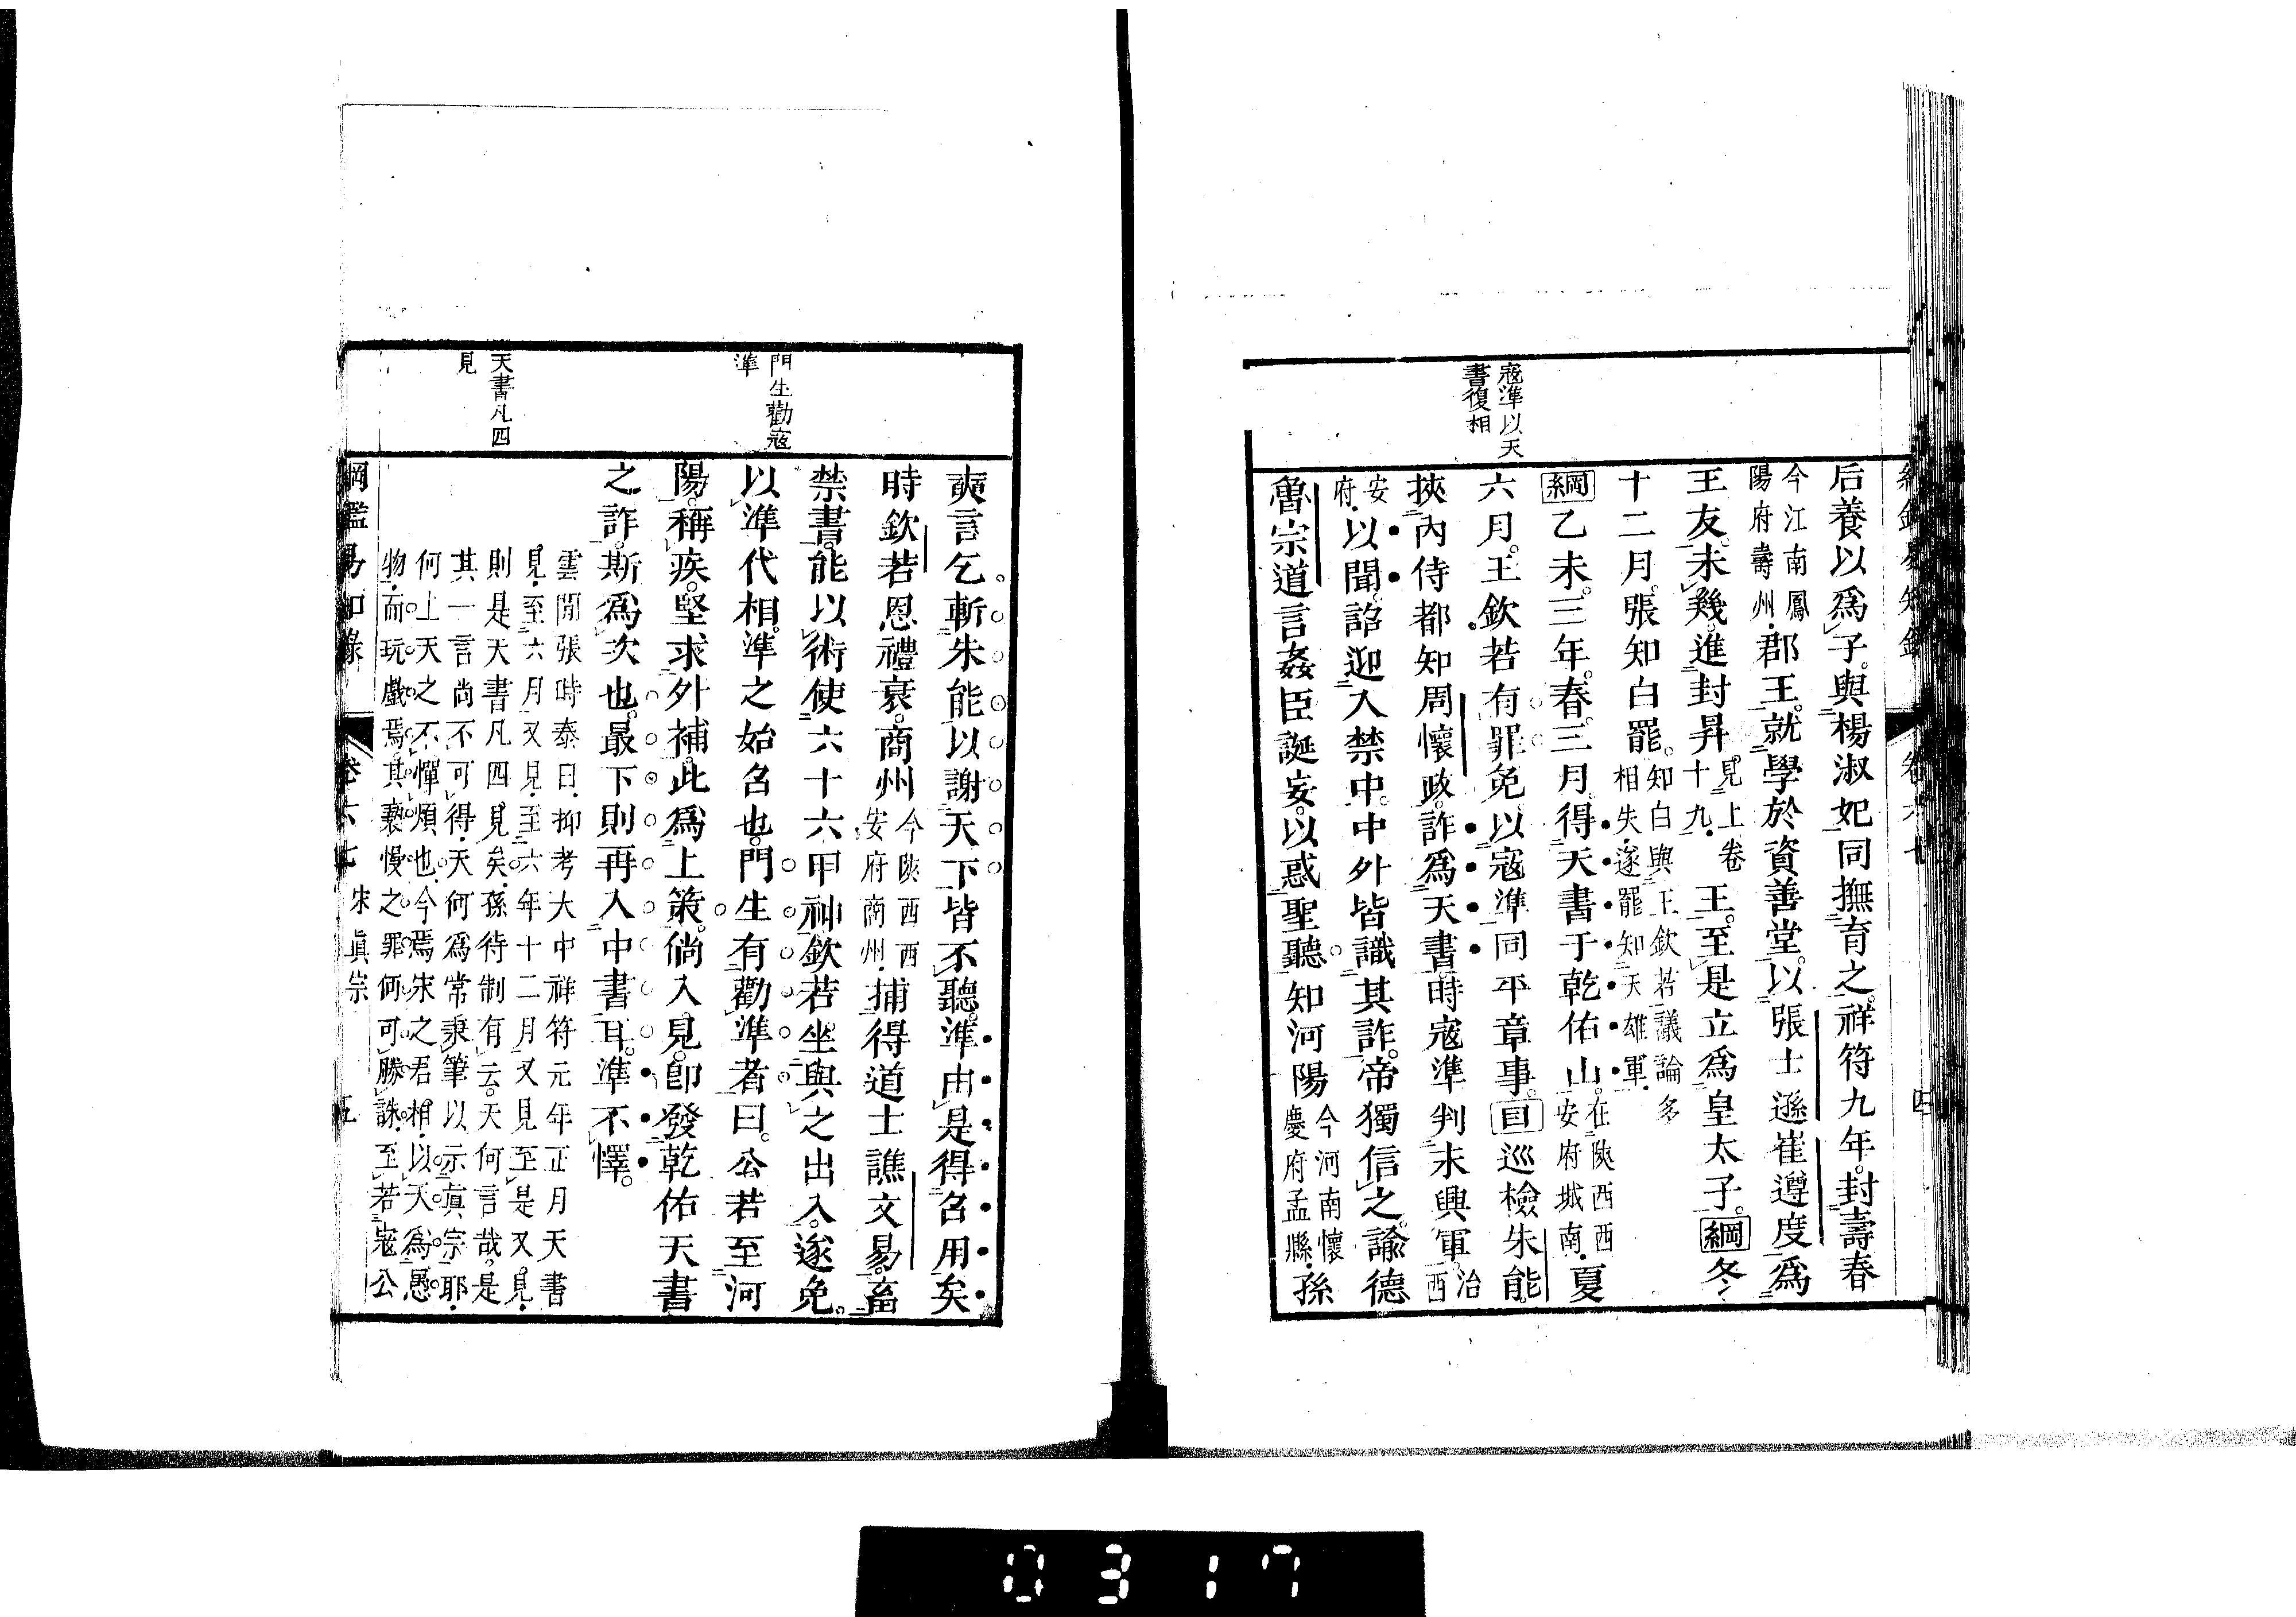 寇準以天
書復相
后養以爲子。與楊淑妃同撫育之。祥符九年。封壽春
今江南鳳
陽府壽州
郡王。就學於資善堂。以張士遜崔遵度爲
王友。未幾。進封昇
見上卷
十九
王。至是立爲皇太子。綱冬
十二月。張知白罷。
知白與王欽若議論多
相失遂罷知天雄軍
綱乙未。三年。春。三月。得天書于乾佑山。
在陝西西
安府城南
夏
六月。王欽若有罪免。以寇準同平章事。目巡檢朱能。
挾內侍都知周懷政。詐爲天書。時寇準判永興軍。
治西
安府
以聞。詔迎入禁中。中外皆識其詐。帝獨信之。諭德
魯宗道言姦臣誕妄。以惑聖聽。知河陽
今河南懷
慶府孟縣
孫
門生勸寇
準
天書凡四
見
奭言乞斬朱能以謝天下。皆不聽。準由是得召用矣。
時欽若恩禮衰。商州
今陝西西
安府商州
捕得道士譙文易。畜
禁書。能以術使六十六甲神。欽若坐與之出入。遂免。
以準代相。準之始召也。門生有勸準者曰。公若至河
陽。稱疾。堅求外補。此爲上策。倘入見。卽發乾佑天書
之詐。斯爲次也。最下則再入中書耳。準不懌。
雲閒張時泰曰抑考大中祥符元年正月天書
見至六月又見至六年十二月又見至是又見
則是天書凡四見矣孫待制有云天何言哉是
其一言尙不可得天何爲常秉筆以示眞宗耶
何上天之不憚煩也今焉宋之君相以天爲愚
物而玩戲焉其褻慢之罪何可勝誅至若寇公
綱鑑易知錄 卷六七 宋眞宗 五